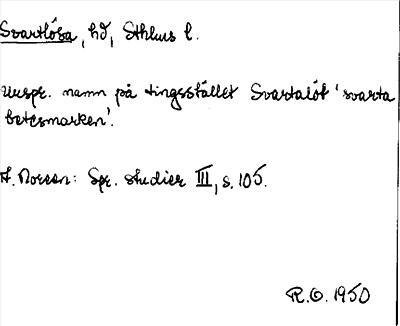 Svartlösa, hd, Sthlms l.
Urspr. namn på tingsstället Svartalöt 'svarta
betesmarken'.
A. Noreen: Spr. studier III, s. 105.
R.O. 1950